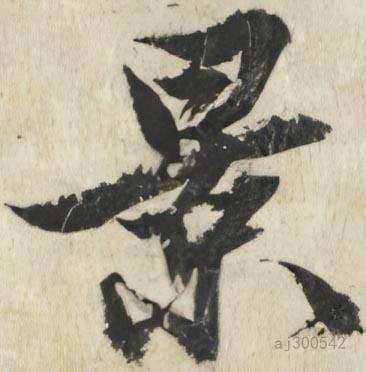 景
aj300542